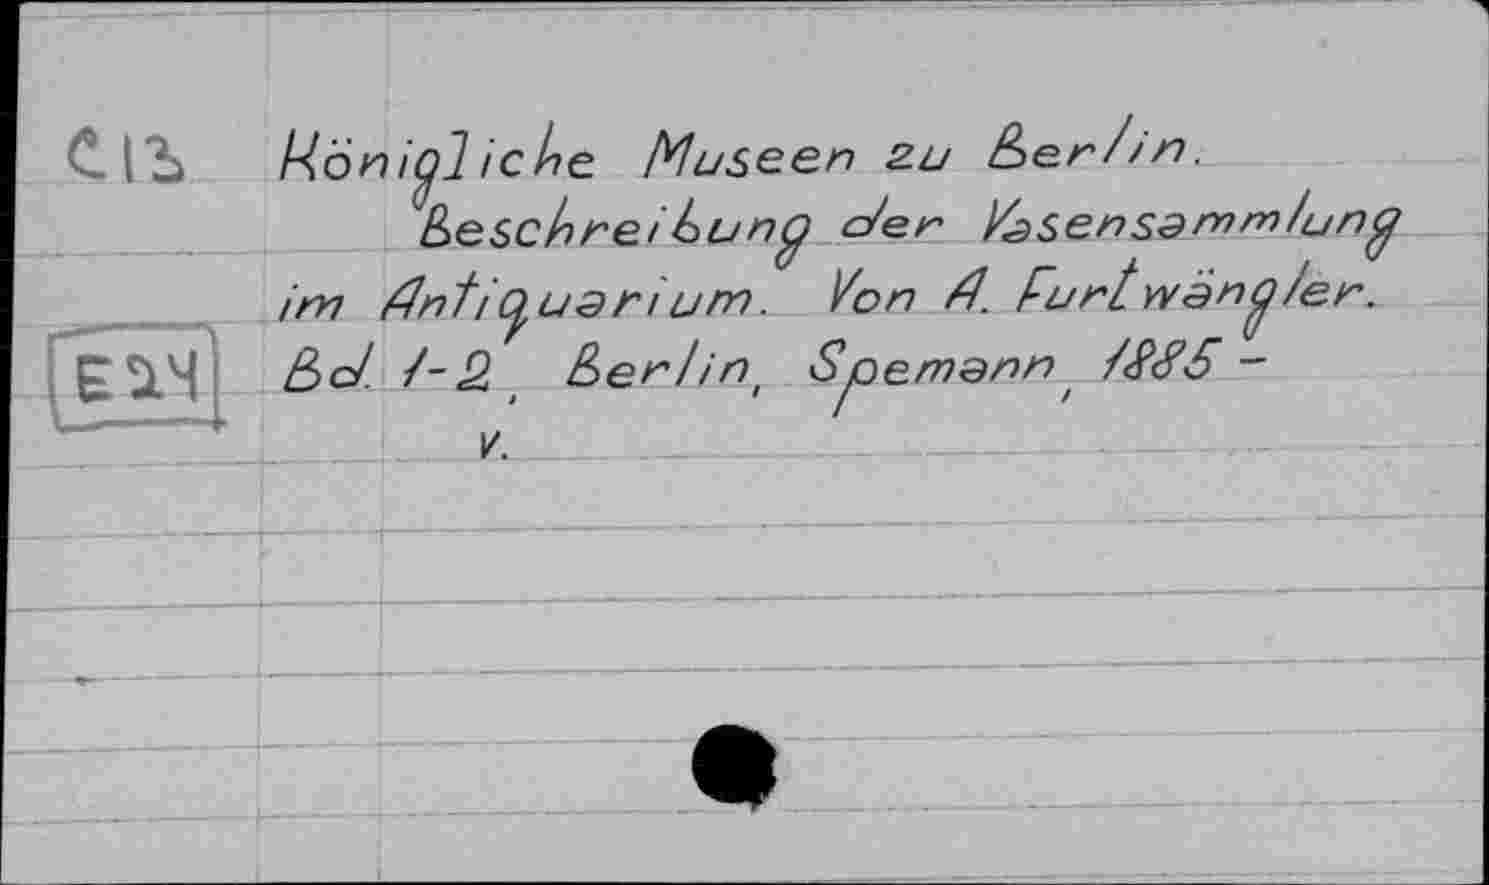 C13 Königliche Museen zu Berlin.
Beschreibung der Vasensammlung
im Antiquarium. Von A. Furtwängler.
E24 Bd. 1-2, Berlin, Spemann, 1885 -
v.